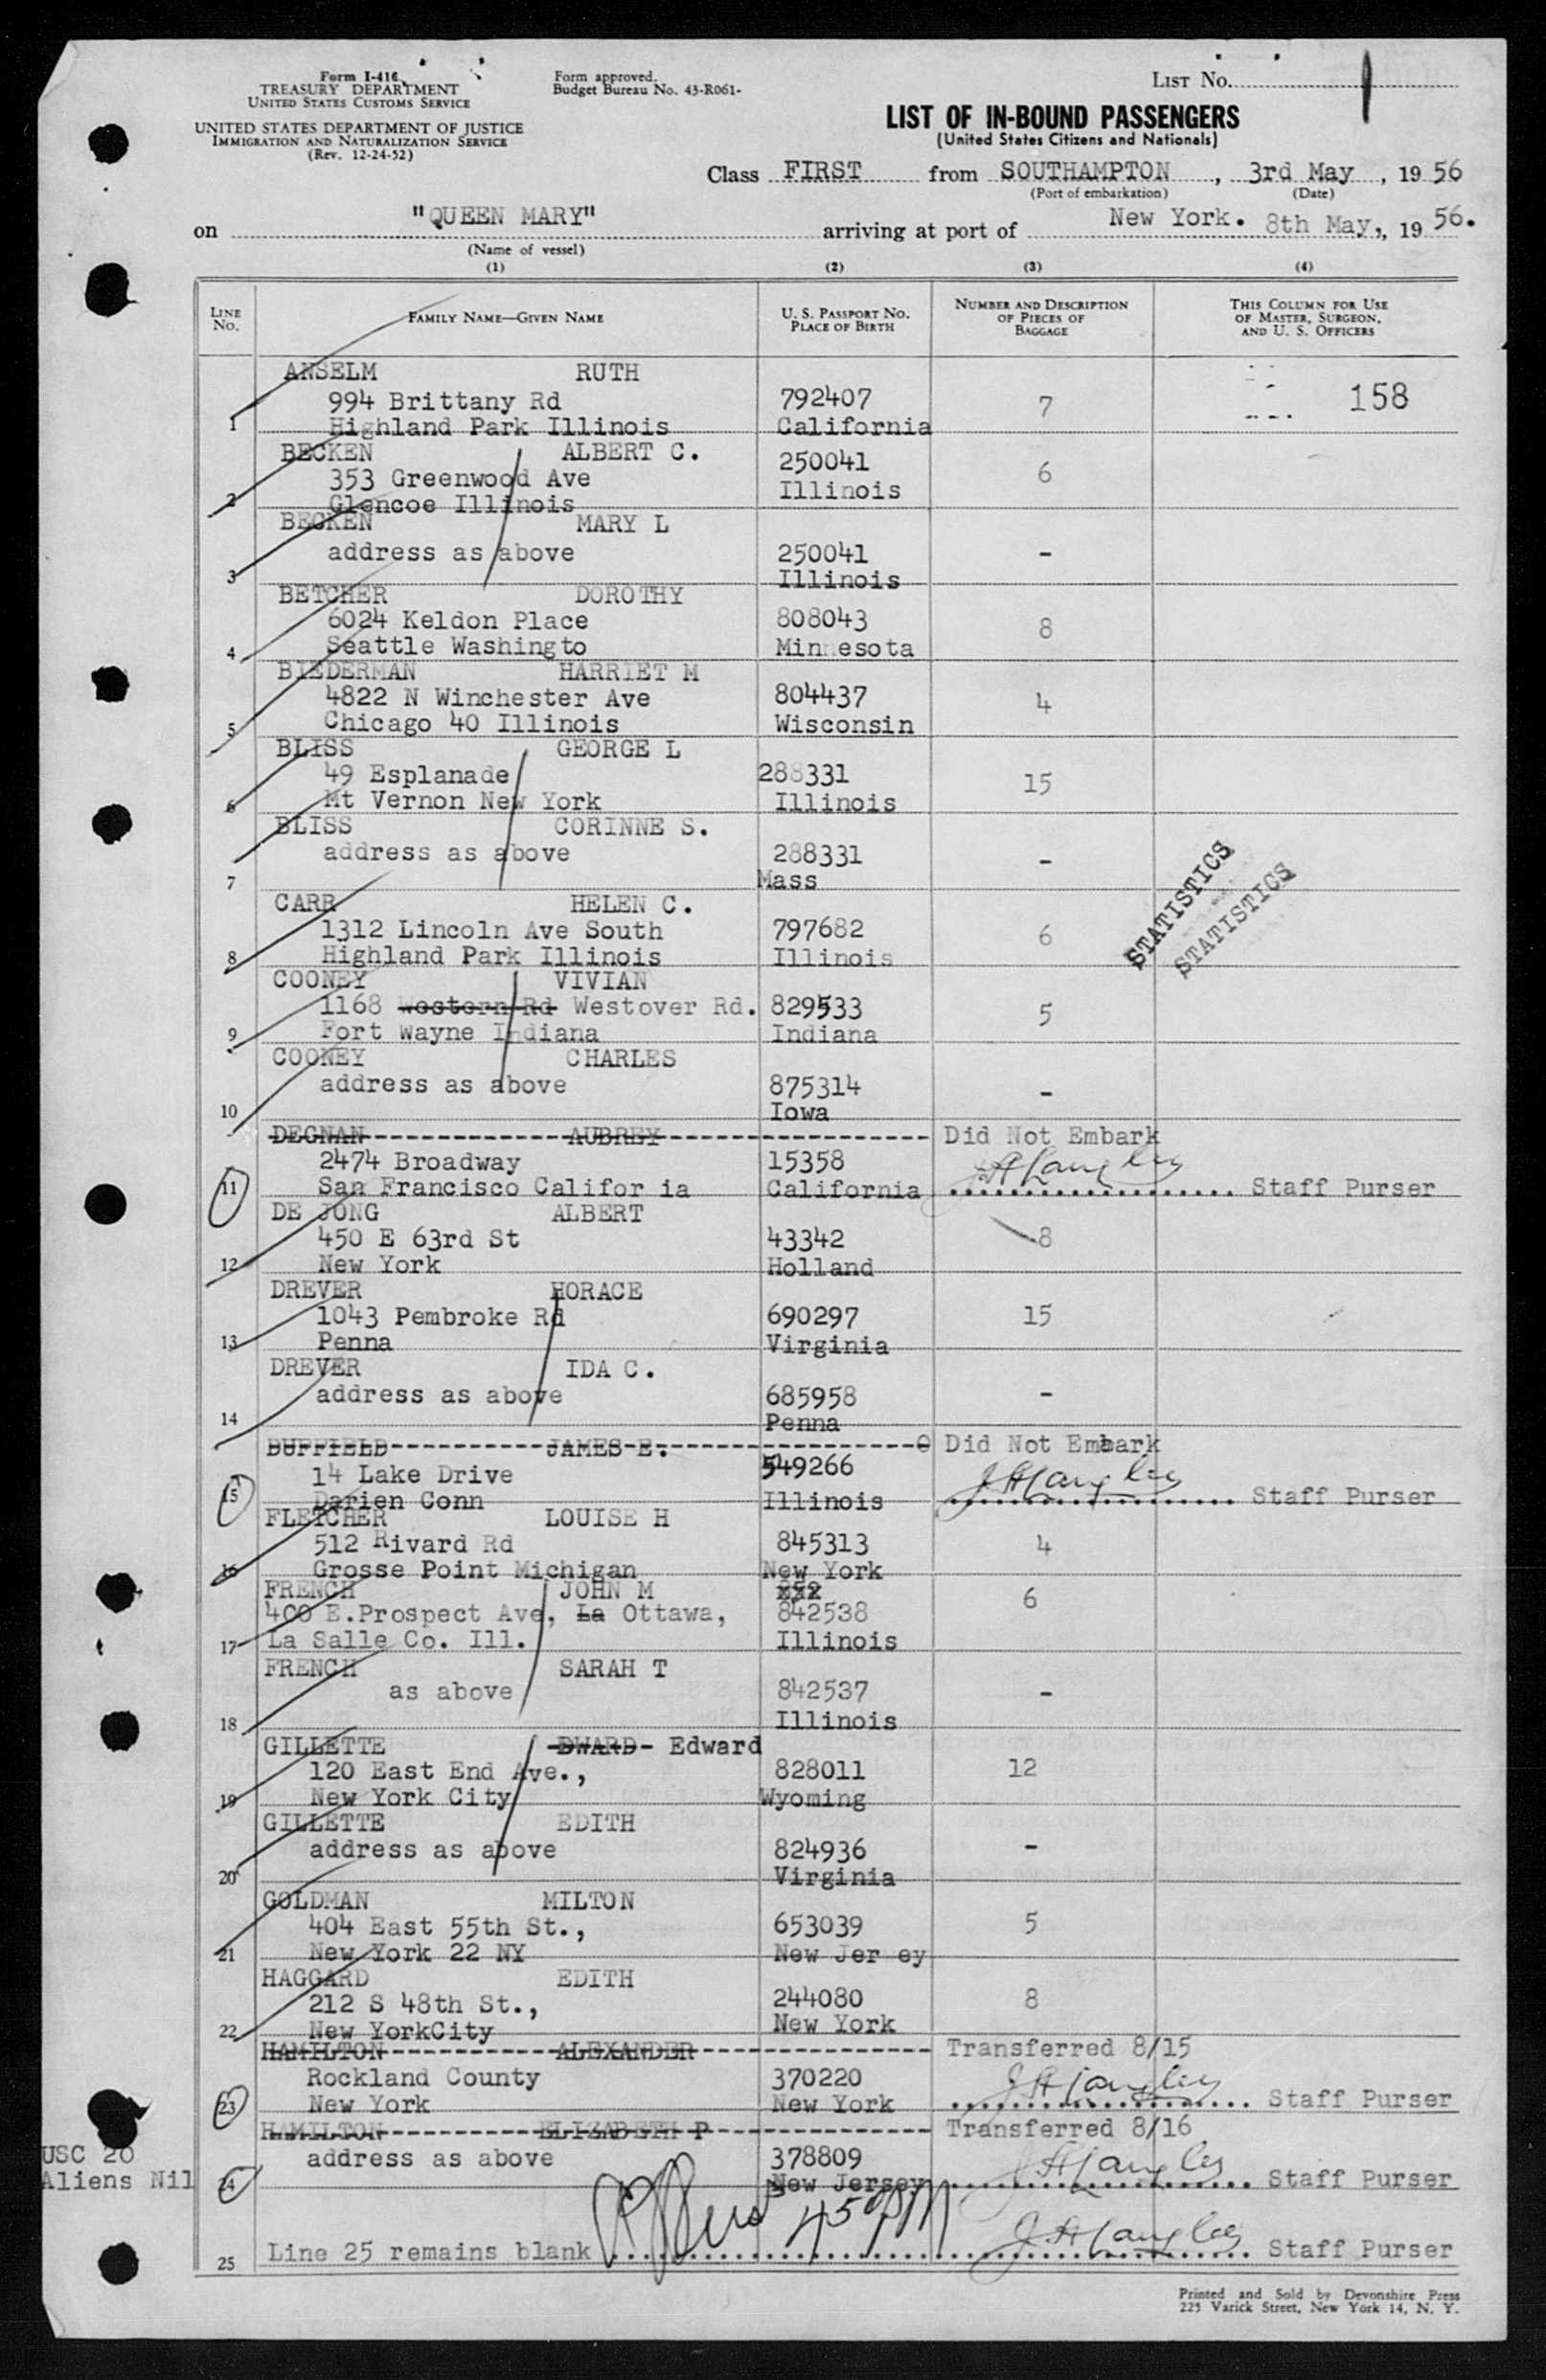 Form I-416
TREASURY DEPARTMENT
UNITED STATES CUSTOMS SERVICE
UNITED STATES DEPARTMENT OF JUSTICE
IMMIGRATION AND NATURALIZATION SERVICE
(Rev. 12-24-52)
Form approved.
Budget Bureau No. 43-R061-
LIST NO. 1
LIST OF IN-BOUND PASSENGERS
(United States Citizens and Nationals)
Class FIRST from SOUTHAMPTON, 3rd May, 1956
(Port of embarkation) (Date)
on "QUEEN MARY" arriving at port of New York. 8th May,, 1956.
(Name of vessel)
(1) (2) (3) (4)
LINE NO. FAMILY NAME—GIVEN NAME U. S. PASSPORT NO. PLACE OF BIRTH NUMBER AND DESCRIPTION OF PIECES OF BAGGAGE THIS COLUMN FOR USE OF MASTER, SURGEON, AND U. S. OFFICERS
ANSELM RUTH
994 Brittany Rd 792407 7 158
1 Highland Park Illinois California
BECKEN ALBERT C.
353 Greenwood Ave 250041 6
2 Glencoe Illinois Illinois
BECKEN MARY L
address as above 250041 -
3 Illinois
BETCHER DOROTHY
6024 Keldon Place 808043 8
4 Seattle Washingto Minnesota
BIEDERMAN HARRIET M
4822 N Winchester Ave 804437 4
5 Chicago 40 Illinois Wisconsin
BLISS GEORGE L
49 Esplanade 288331 15
6 Mt Vernon New York Illinois
BLISS CORINNE S.
address as above 288331 -
7 Mass
STATISTICS
STATISTICS
CARR HELEN C.
1312 Lincoln Ave South 797682 6
8 Highland Park Illinois Illinois
COONEY VIVIAN
1168 Western Rd Westover Rd. 829533 5
9 Fort Wayne Indiana Indiana
COONEY CHARLES
address as above 875314 -
10 Iowa
DEGNAN AUBREY Did Not Embark
2474 Broadway 15358
11 San Francisco Califor ia California J.A Langley Staff Purser
DE JONG ALBERT
450 E 63rd St 43342 8
12 New York Holland
DREVER HORACE
1043 Pembroke Rd 690297 15
13 Penna Virginia
DREVER IDA C.
address as above 685958 -
14 Penna
DUFFIELD JAMES E. Did Not Embark
14 Lake Drive 549266
15 Darien Conn Illinois J A Langley Staff Purser
FLETCHER LOUISE H
512 Rivard Rd 845313 4
16 Grosse Point Michigan New York
FRENCH JOHN M 6
400 E.Prospect Ave, La Ottawa, 842538
17 La Salle Co. Ill. Illinois
FRENCH SARAH T
as above 842537 -
18 Illinois
GILLETTE DWARD- Edward
120 East End Ave., 828011 12
19 New York City Wyoming
GILLETTE EDITH
address as above 824936 -
20 Virginia
GOLDMAN MILTON
404 East 55th St., 653039 5
21 New York 22 NY New Jer ey
HAGGARD EDITH
212 S 48th St., 244080 8
22 New YorkCity New York
HAMILTON ALEXANDER Transferred 8/15
Rockland County 370220
23 New York New York J A Langley Staff Purser
HAMILTON ELIZABETH P Transferred 8/16
USC 20
address as above 378809
Aliens Nil 24 New Jersey J A Langley Staff Purser
25 Line 25 remains blank J A Langley Staff Purser
Printed and Sold by Devonshire Press
225 Varick Street, New York 14, N. Y.